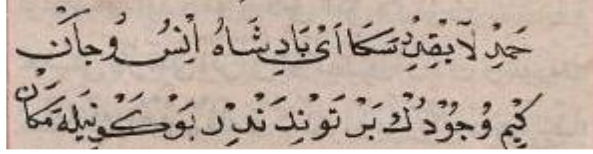 حمد لايقدر سكا اى بادشاه انس وجان
كيم وجودك برتوندندر بو كونيله مكان